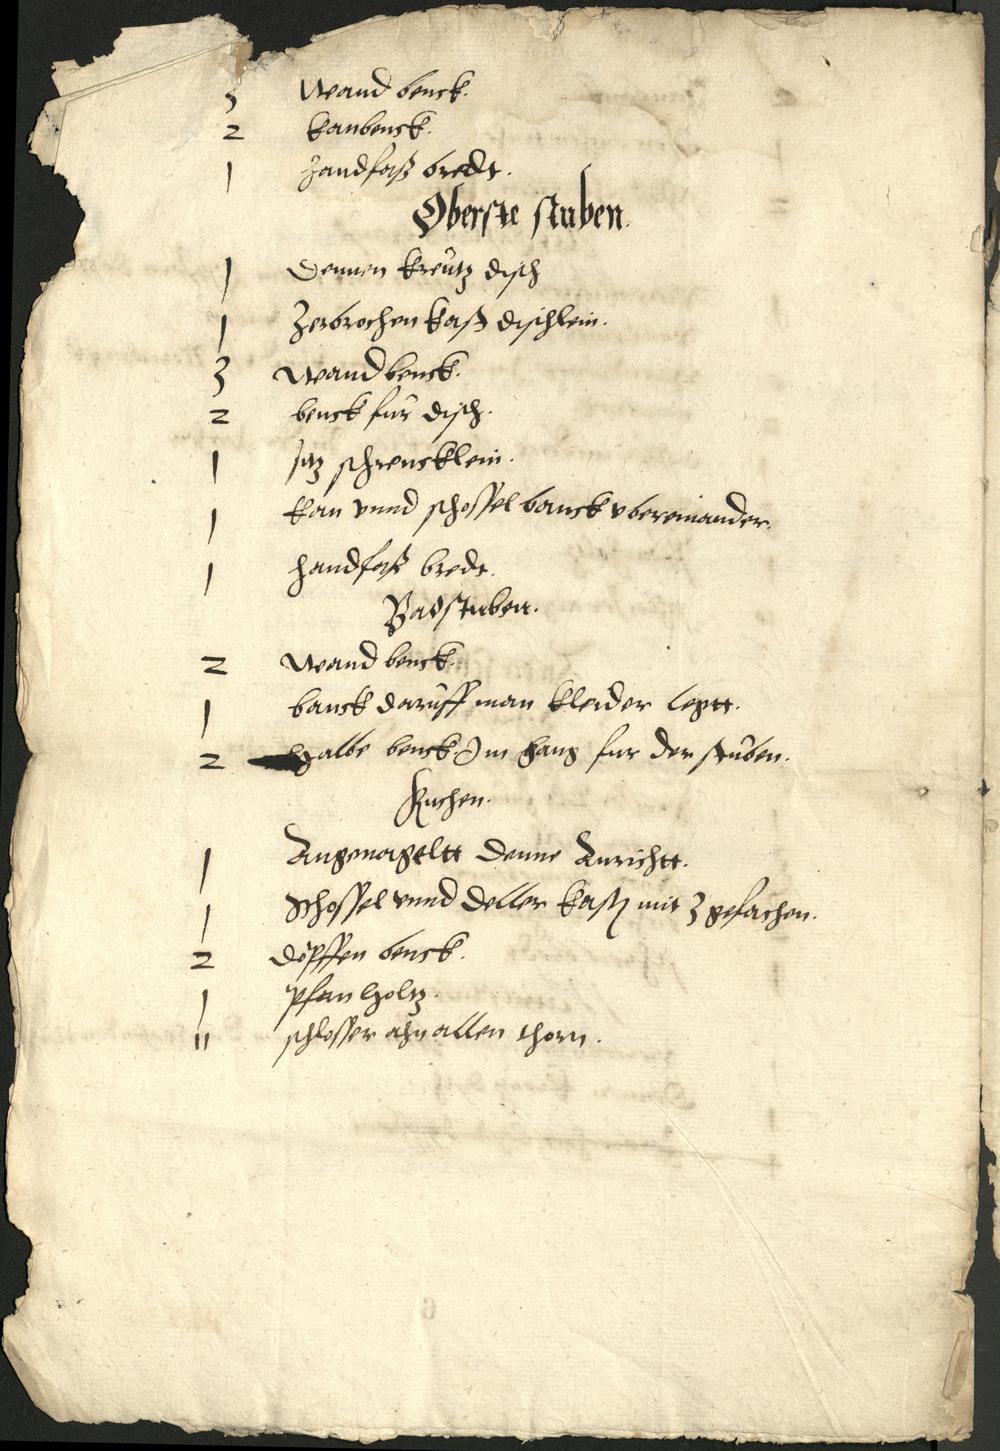 3 Wand benck.
2 kanbenck.
1 handfaß bredt.
Oberste stuben.
1 Dennen kreutz disch
1 Zerbrochen kast dischlein.
3 Wandbenck.
2 benck fur disch.
1 sitz schrencklein.
1 kan vnnd schossel banck vbereinander.
1 handfaß bredt.
Badstuben.
2 Wand benck.
1 banck daruff man kleider legtt.
2 halbe benck im gang fur der stuben.
Kuchen.
1 Angenageltt denne Anrichtt.
1 Schossel vnnd deller kast mit 3 gefachen.
2 döpffen benck.
1 Pfan holtz.
11 schlosser ahn allen thorn.